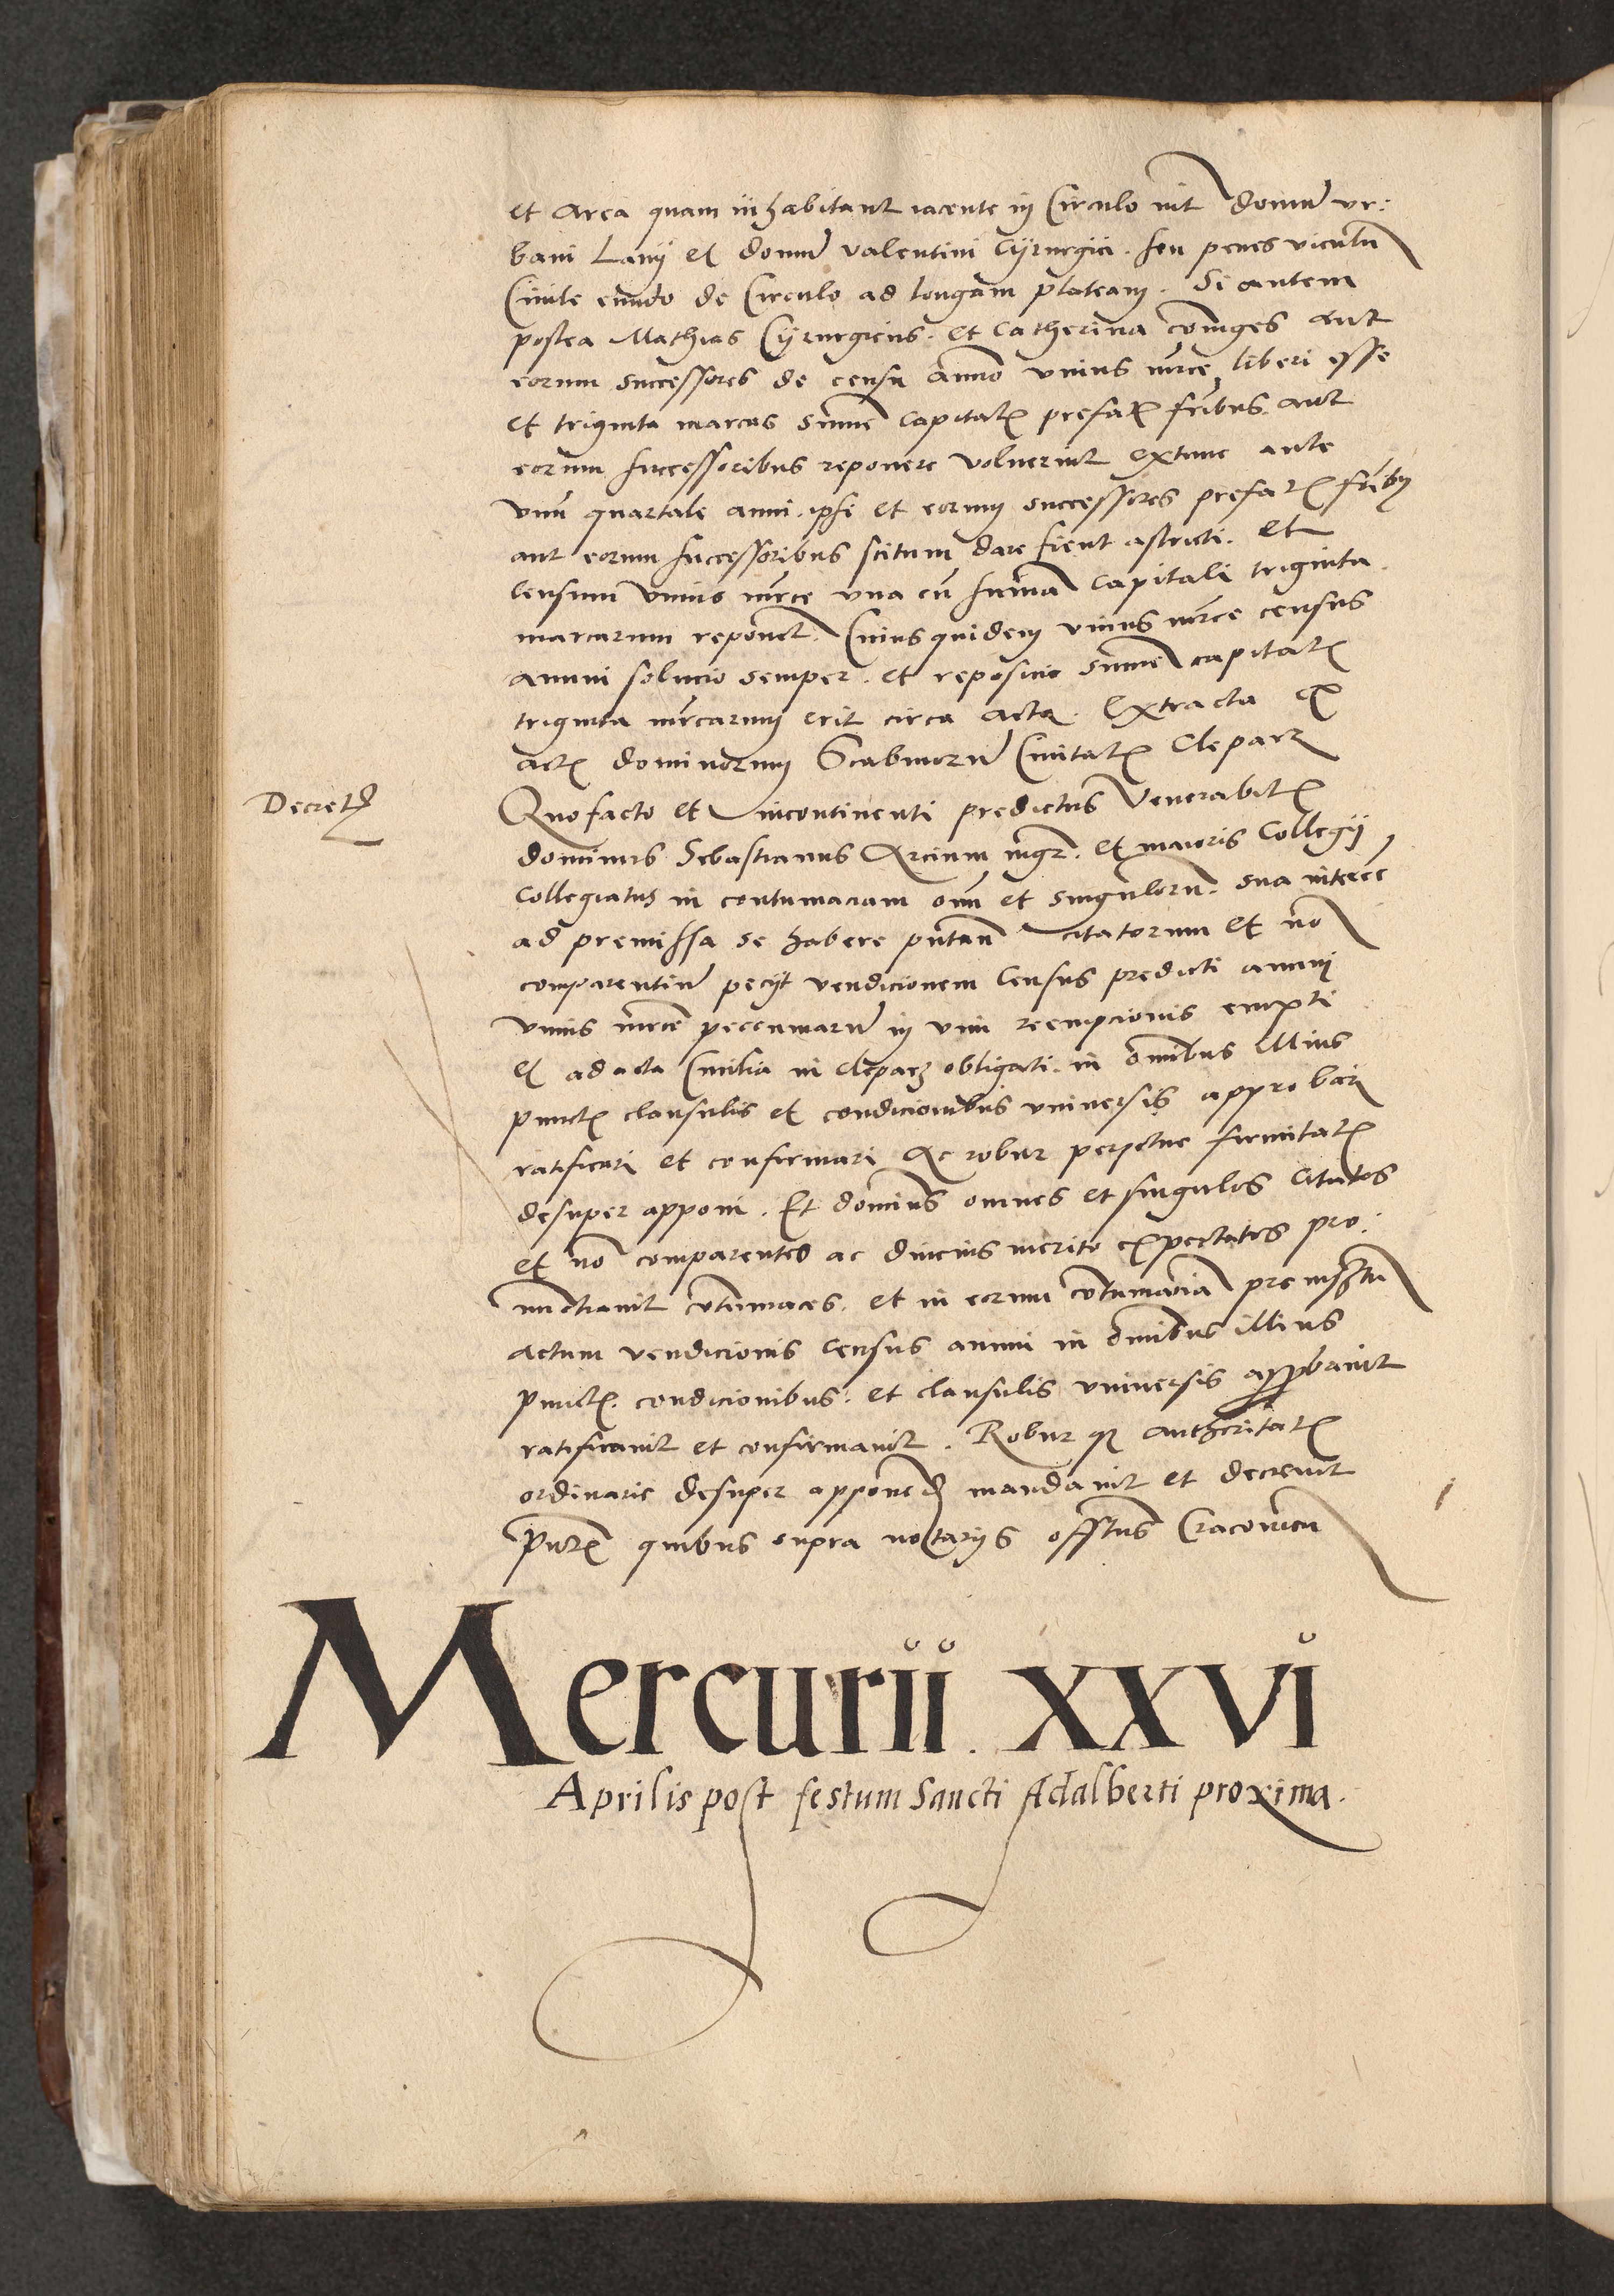 et Area quam inhabitant iacente in Circulo int domu vr:
bani Lanij et domu valentini Cijrurgici. seu penes viculu
Ciuile eundo de Circulo ad longam plateam. Si autem
postea Mathias Cijrurgicus. et Catherina coniuges aut
eorum successores de censu annuo vnius mrce liberi esse
et triginta marcas summe capitalis prefatis fribus aut
eorum successoribus reponere voluerint extunc ante
vnum quartale anni. ipsi et eorum successores prefatis fribus
aut eorum successoribus scitum dare sient astricti. et
censum vnius mrce vna cu summa capitali triginta
marcarum reponet. Cuiusquidem vnius mrce census
annui solucio semper. et reposicio summe capitalis
triginta mrcarum erit circa acta. Extracta ex
actis dominorum Scabinoru Ciuitatis Cleparz
Decretum
Quofacto et incontinenti predictus Venerabilis
dominus Sebastianus Arcium mgr. et maioris Collegij
Collegiatus in contumaciam omnium et singuloru. sua interee
ad premissa se habere putan citatorum et no
comparentiu pecijt vendicionem Census predicti annui
vnius mrce pecuniaru in vim reempcionis empti
et ad acta Ciuilia in Cleparz obligati. in omnibus illius
punctis clausulis et condicionibus vniuersis approbari
ratificari et confirmari Ac robur perpetue firmitatis
desuper apponi. Et dominus omnes et singulos Citatos
et no comparentes ac diucius merito expectatos pro:
nunctiauit contumaces. et in eorum contumacia preinsertu
actum vendicionis census annui in omnibus illius
punctis. condicionibus. et clausulis vniuersis approbauit
ratificauit et confirmauit. Robur qz authoritatis
ordinarie desuper apponend mandauit et decreuit
Pntibus quibus supra notarijs offitus Cracouien
Mercurii. XXVI
Aprilis post festum Sancti Adalberti proxima.